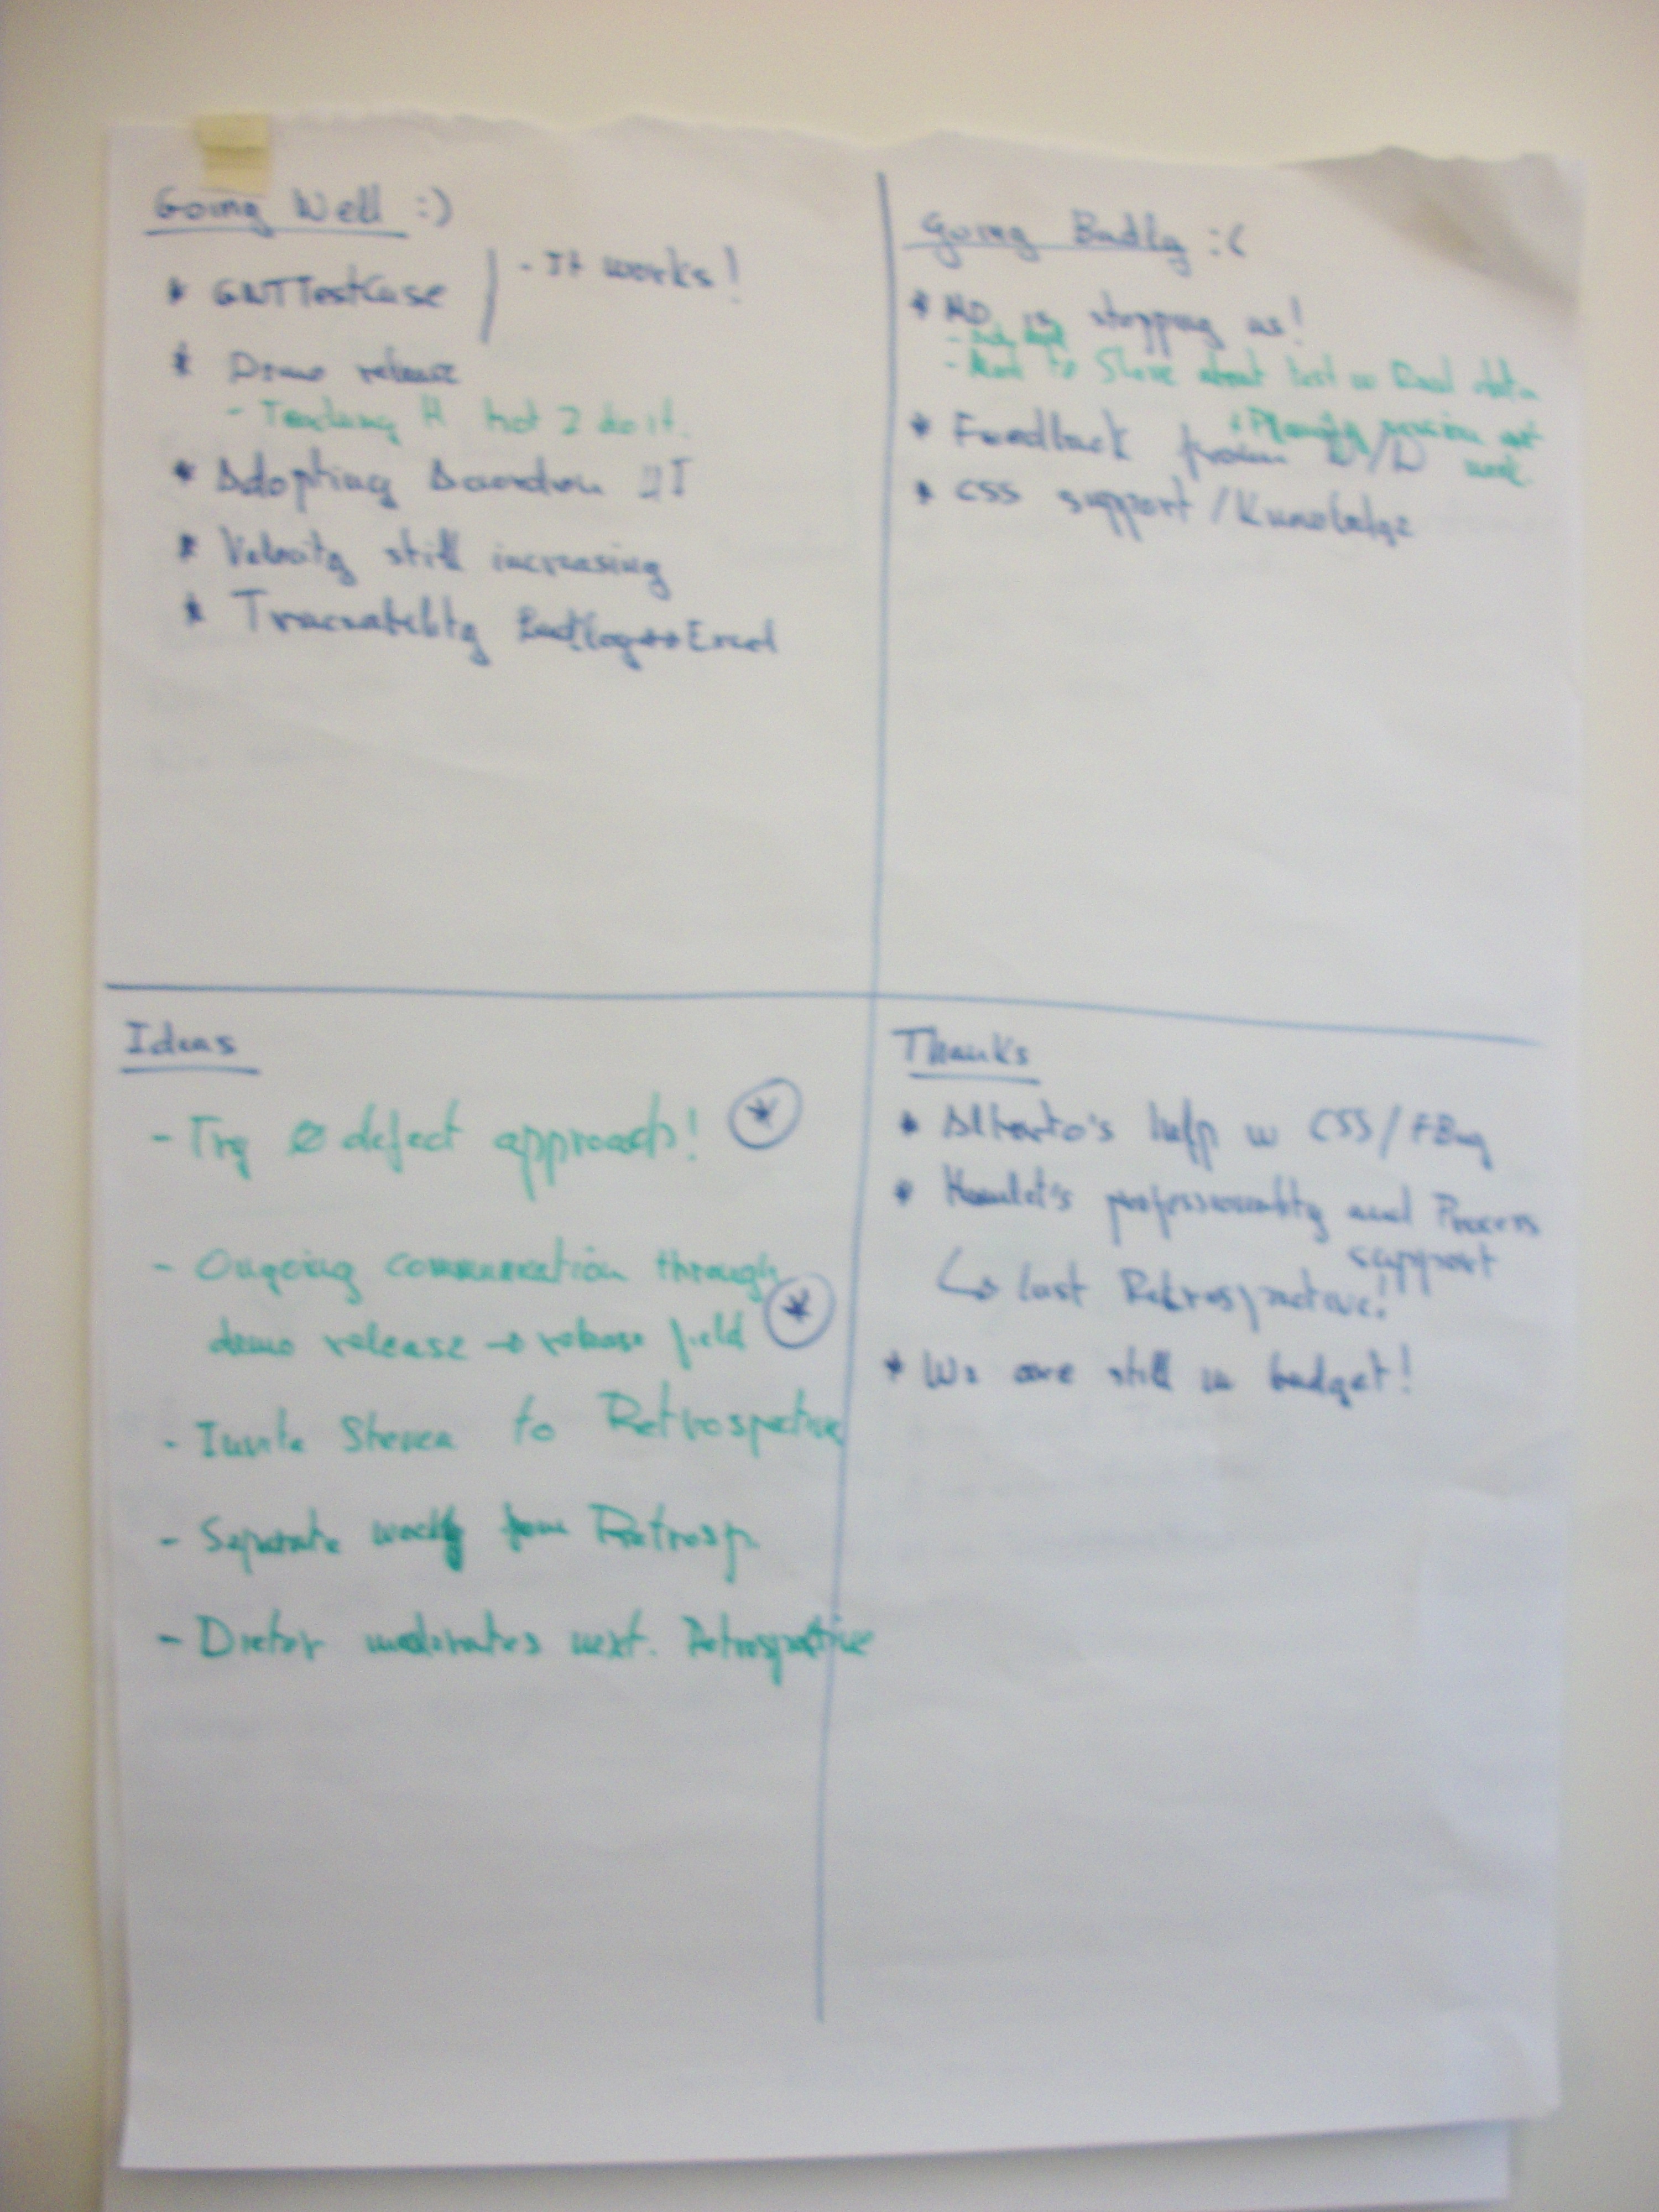 Going Well :)
* GWTTestCase
- It works!
* Demo release
- Teaching H hot 2 do it.
* Adopting UI
* Velocity still increasing
* Backlog ↔ Excel
Going Badly :(
* is stopping us!
- to Steve about test w Real data
+ Planning session
* Feedback from
* CSS support / Knowledge
Ideas
- Try Ø defect approach! *
- Ongoing communication through
demo release → release field *
- Invite Steven to Retrospective
- Separate from Retrosp.
- Dieter moderates next. Retrospective
Thanks
* Alberto's help w CSS/FBug
* Hamlet's and Process
support
↳ last Retrospective!
* We are still in budget!